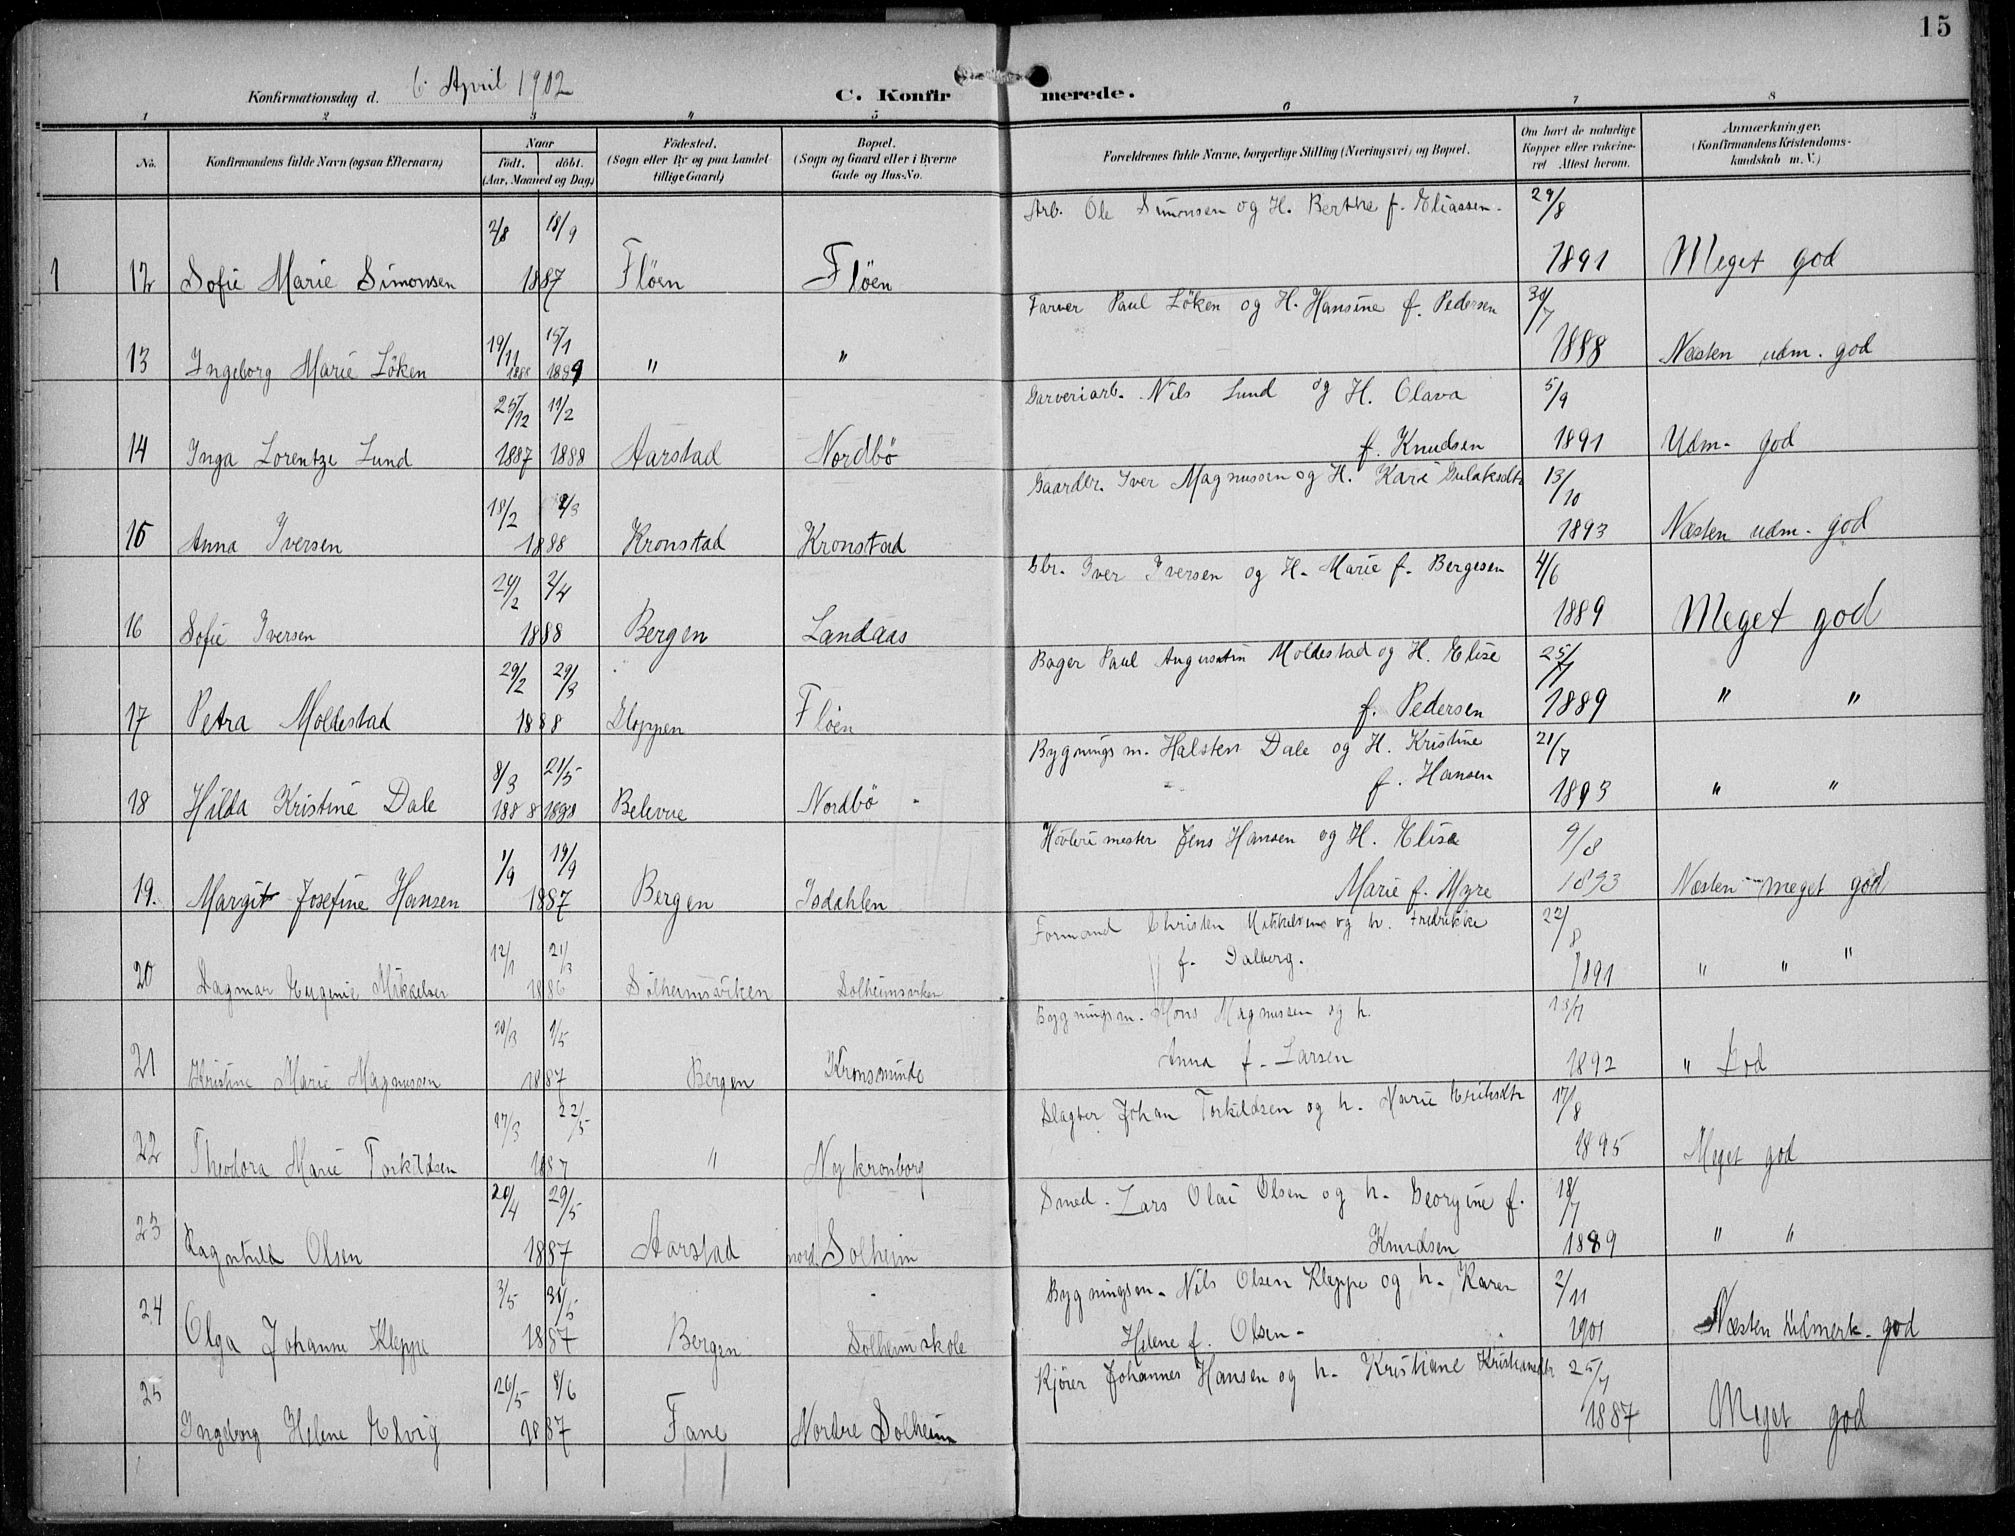 15
Konfirmationsdag d. 6. April 1902
C. Konfirmerede.
1 2 3 4 5 6 7 8
No. Konfirmandens fulde Navn (ogsaa Efternavn) Naar født, døbt. (Aar, Maaned og Dag) Födested. (Sogn eller By og paa Landet tillige Gaard) Bopæl. (Sogn og Gaard eller i Byerne Gade og Hus-No. Forældrenes fulde Navne, borgerlige Stilling (Næringsvei) og Bopæl. Om havt de naturlige Kopper eller vakcineret Attest herom. Anmærkninger. (Konfirmandens Kristendomskundskab m. V.)
2/8 18/9 Arb. Ole Simonsen og H. Berthe f. Eliassen. 29/8
1 12 Sofie Marie Simonsen 1887 Fløen Fløen 1891 Meget god
Farver Paul Løken og H. Hansine f. Pedersen 30/7
13 Ingeborg Marie Løken 19/11 1888 15/1 1889 " " 1888 Næsten udm. god
25/12 11/2 Garveriarb. Nils Lund og H. Olava 5/9
14 Inga Lorentze Lund 1887 1888 Aarstad Nordbö f. Knudsen 1891 Udm. god
18/2 8/3 Gaardbr. Iver Magnussen og H. Kari Gulaksdtr 13/10
15 Anna Iversen 1888 Kronstad Kronstad 1893 Næsten udm. god
24/2 2/4 Gbr. Iver Iversen og H. Marie f. Bergesen 4/6
16 Sofie Iversen 1888 Bergen Landaas 1889 Meget god
29/2 29/3 Bager Paul Moldestad og H. Elise 25/7
17 Petra Moldestad 1888 Gloppen Fløen f. Pedersen 1889 " "
8/3 21/5 Bygningsm. Halsten Dale og H. Kristine 21/7
18 Hilda Kristine Dale 1888 1888 Belevue Nordbö f. Hansen 1893 " "
1/9 19/9 Høvlerimester Jens Hansen og H. Elise 9/8
19. Margit Josefine Hansen 1887 Bergen Isdahlen Marie f. Myre 1893 Næsten meget god
12/1 21/3 Formand Christen Mikkelsen og h. Fredrikke 22/8
20 Dagmar Eugenie Mikkelsen 1886 Solheimsviken Solheimsviken f. Dalberg. 1891 " " "
20/3 1/5 Bygningsm. Mons Magnussen og h. 13/7
21 Kristine Marie Magnussen 1887 Bergen Kronsminde Anna f. Larsen 1892 " God
27/3 22/5 Slagter Johan Torkildsen og h. Marie Eriksdtr 17/8
22 Theodora Marie Torkildsen 1887 " Ny kronborg 1895 Meget god
20/4 29/5 Smed. Lars Olai Olsen og h. Georgine f. 18/7
23 Ragnhild Olsen 1887 Aarstad nord. Solheim Knudsen 1889 " "
3/5 31/5 Bygningsm. Nils Olsen Kleppe og h. Karen 2/11
24 Olga Johanne Kleppe 1887 Bergen Solheim skole Helene f. Olsen 1901 Næsten Udmerk. god
26/5 8/6 Kjører Johannes Hansen og h. Kristiane Kristiansdtr 25/7
25 Ingeborg Helene Elvig 1887 Fane Nordre Solheim 1887 Meget god